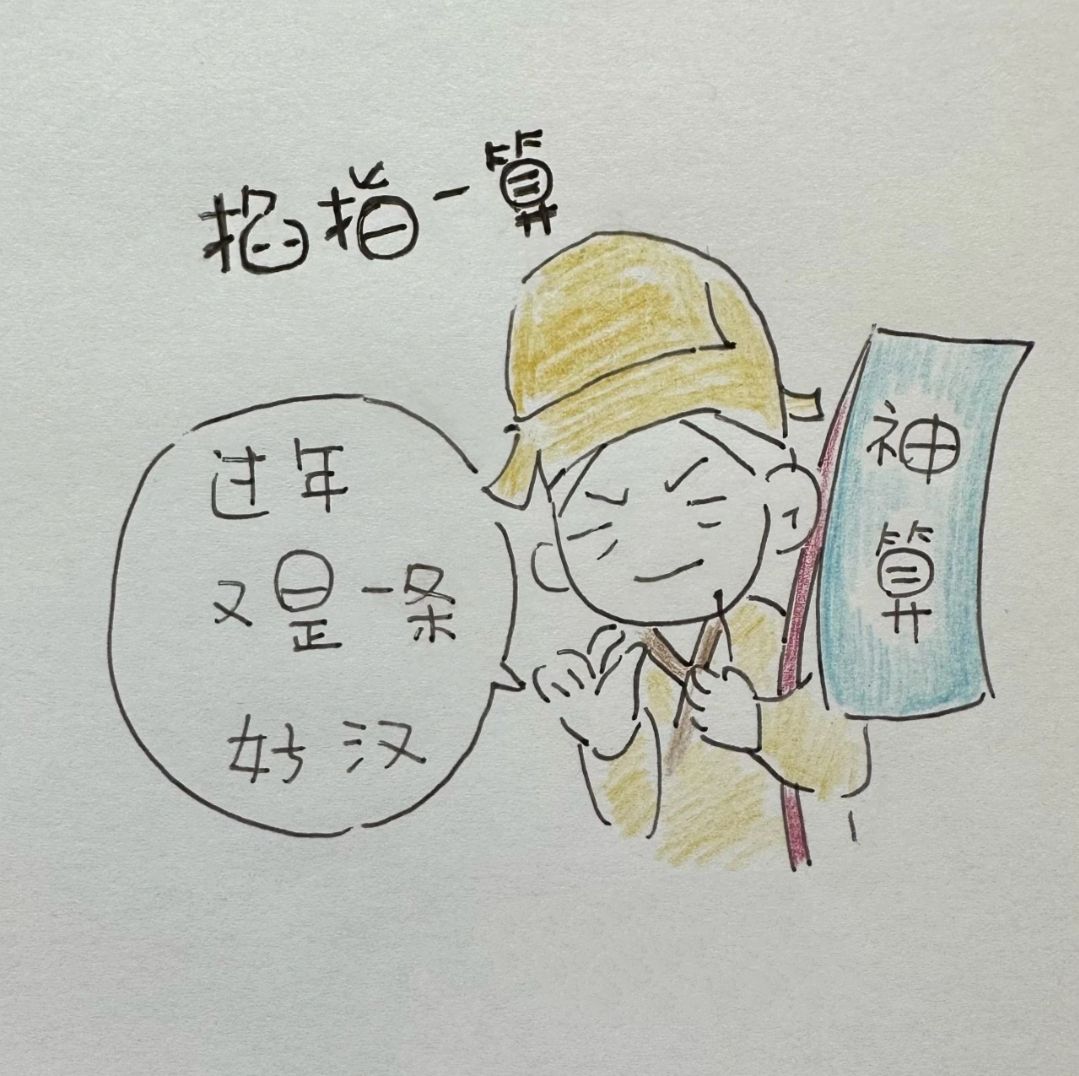 掐指一算
过年
又是一条
好汉
神
算